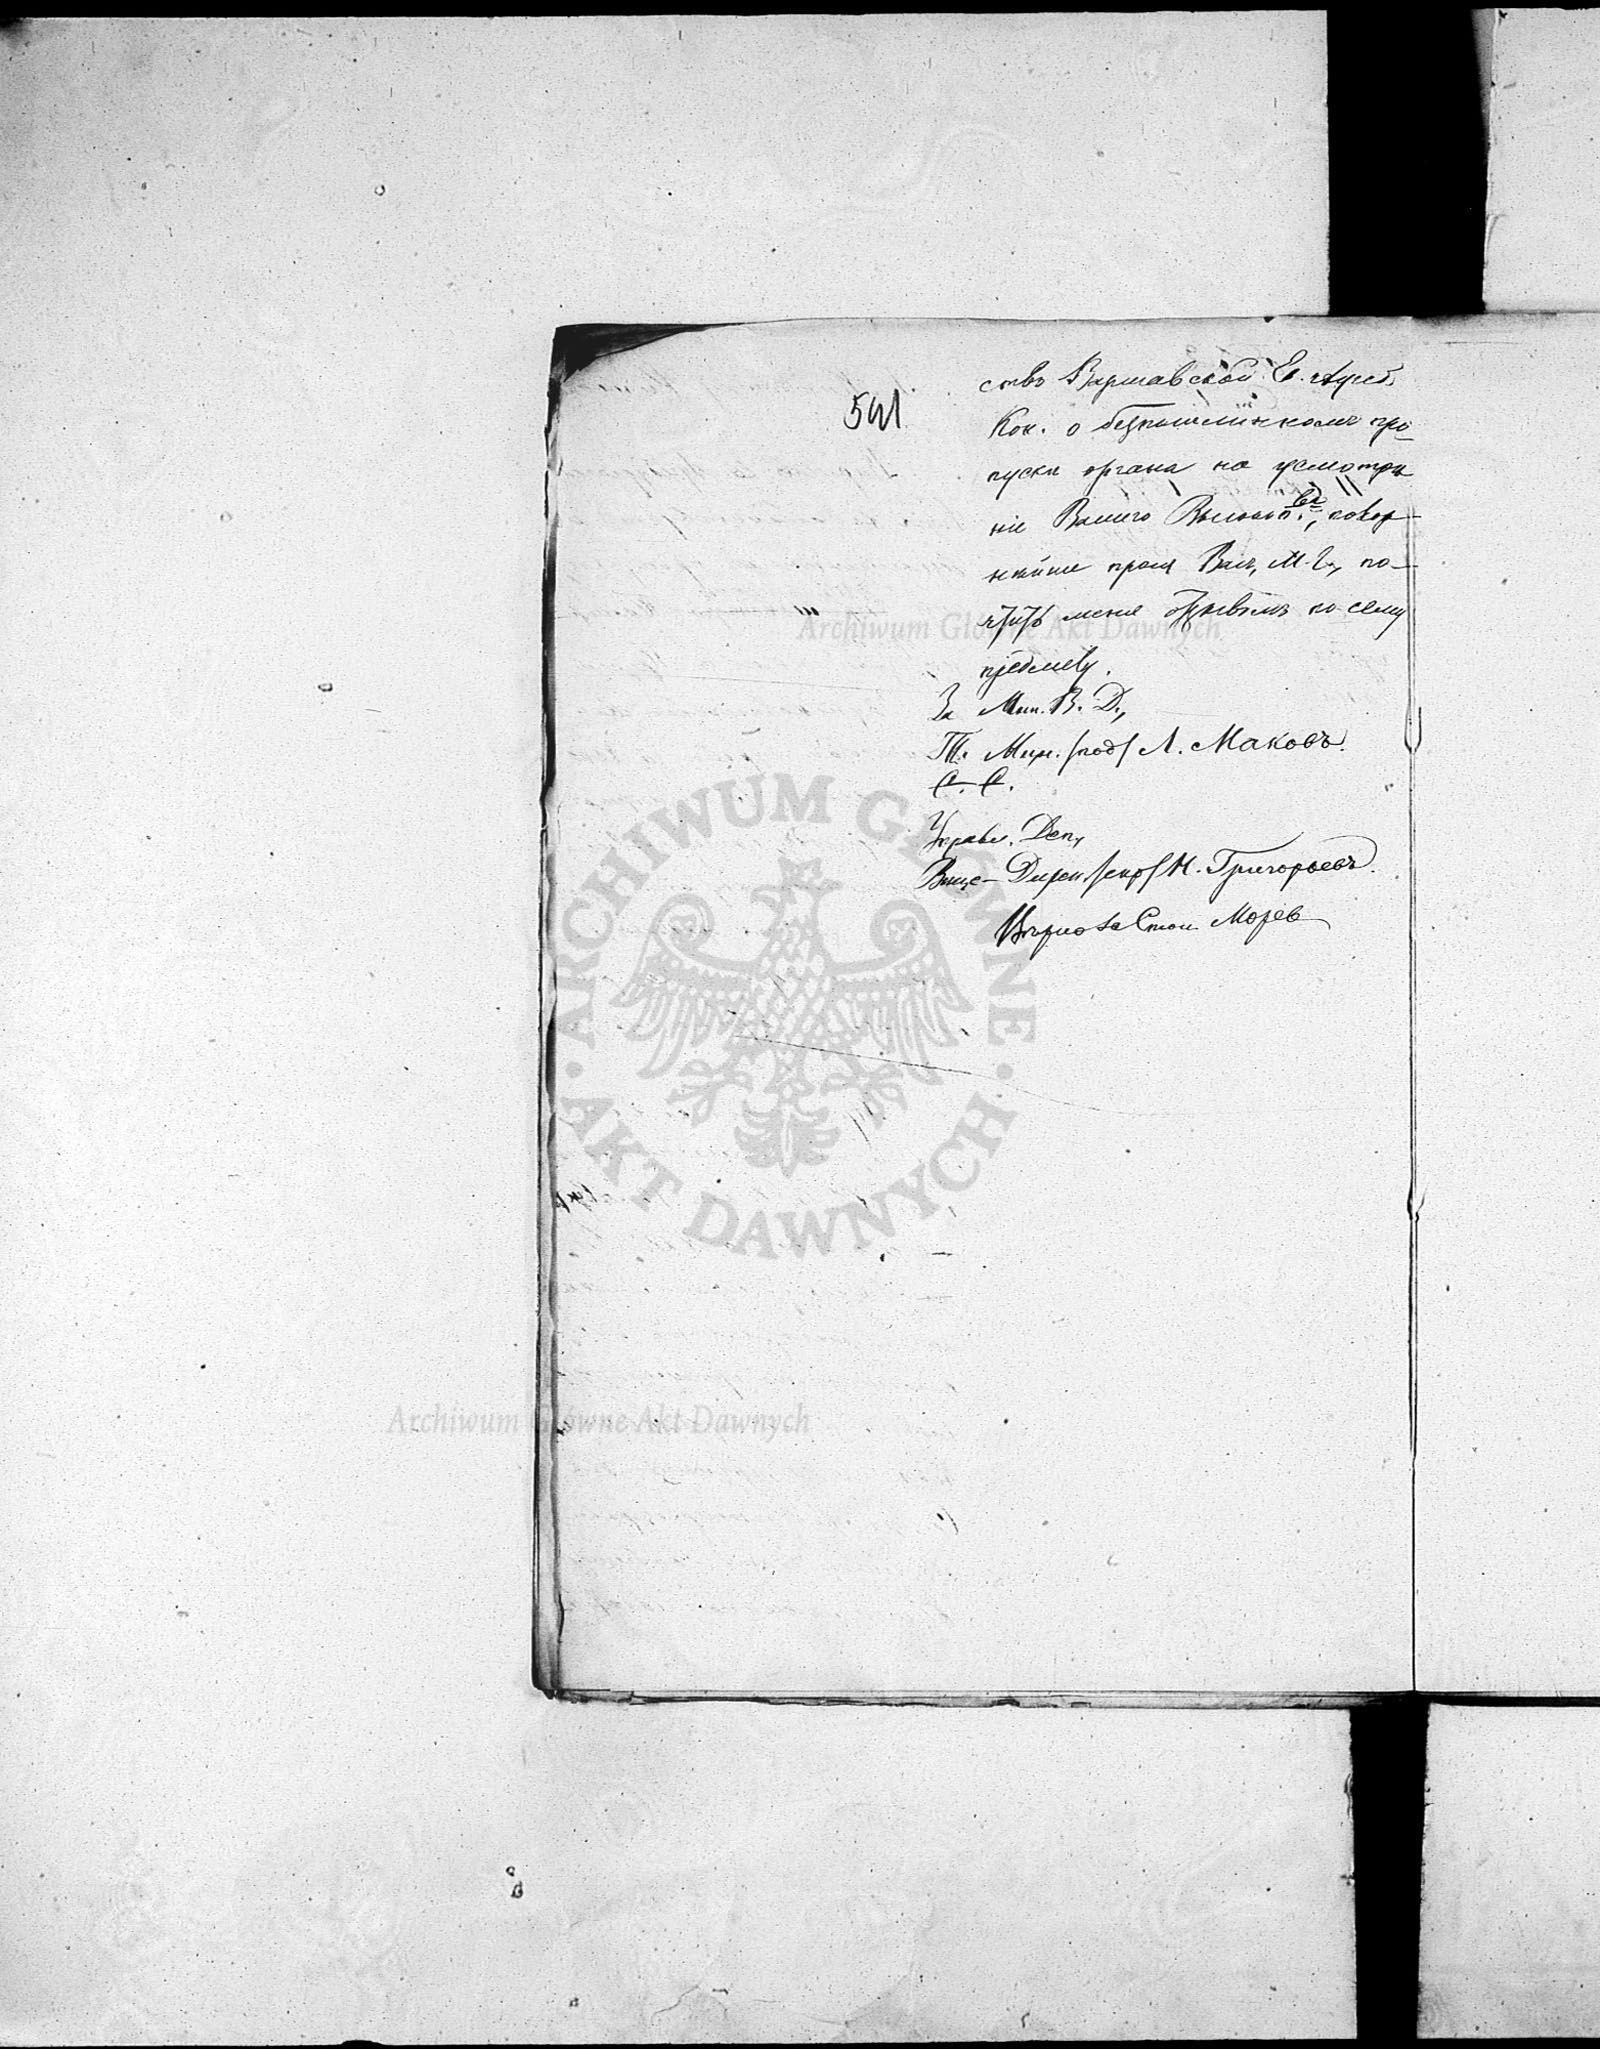 541
ствъ Варшавской Е. Аугсб.
Кон. о безпошлинномъ про-
пускѣ органа на усмотрѣ
ніе Вашего Высокопр.ва, покор-
нѣйше прошу Васъ, М. Г., по-
чтить меня отзывомъ по сему
предмету.
За Мин. В. Д.,
Т. Мин. /под/ Л. Маковъ.
С. С.
Управл. Деп,
Вице-Дирек /скр/ Н. Григорьевъ.
Вѣрно За Стол. Морев
Archiwum Główne Akt Dawnych
ARCHIWUM GŁÓWNE
AKT DAWNYCH
Archiwum Główne Akt Dawnych